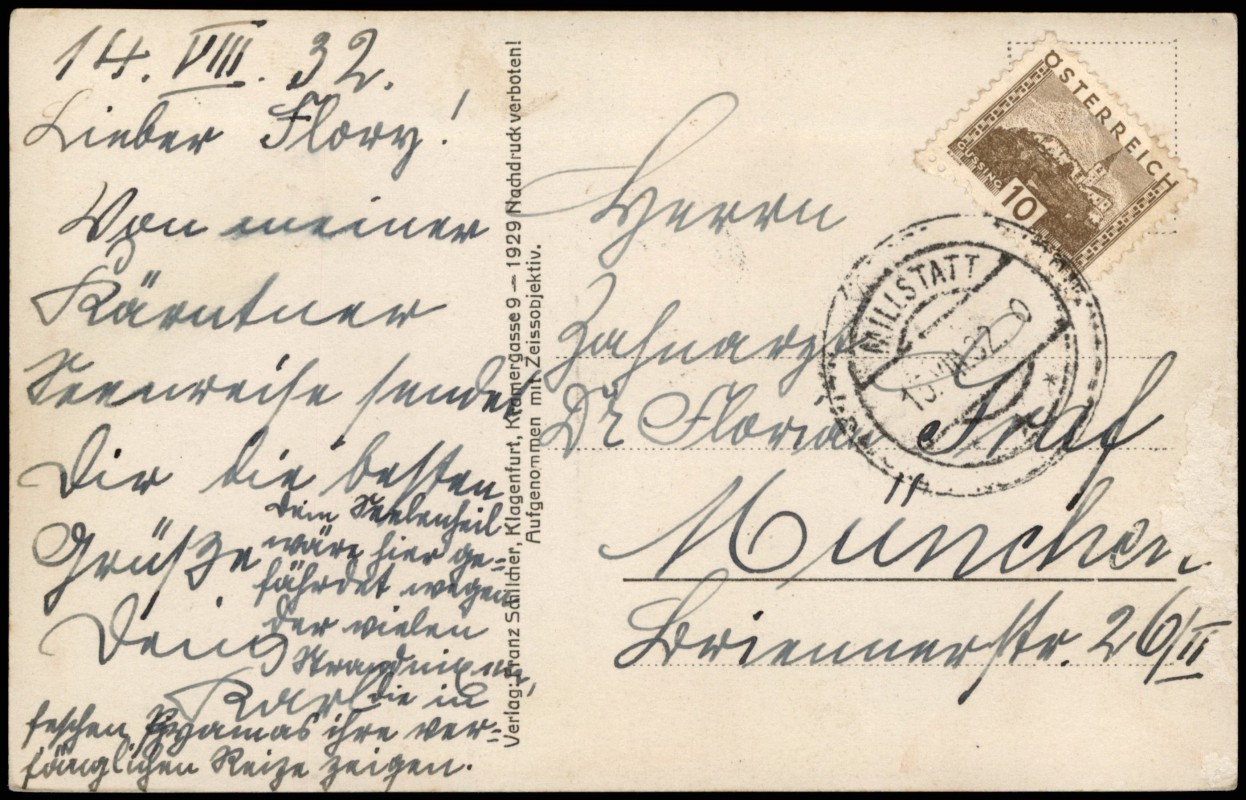 14. VIII. 32.
Lieber Flory!
Von meiner
Kärntner
Seenreise sendet
Dir die besten
Grüße
Dein
Karl
Dein Seelenheil
wäre hier ge-
fährdet wegen
der vielen
Strandnixen,
die in
feschen Pyjamas ihre ver-
fänglichen Reize zeigen.
Verlag: Franz Schilcher, Klagenfurt, Kramergasse 9 — 1929 Nachdruck verboten!
Aufgenommen mit Zeissobjektiv.
ÖSTERREICH
GÜSSING
10
MILLSTATT
15.VIII.32
Herrn
Zahnarzt
Dr Florian Graf
München.
Briennerstr. 26/II